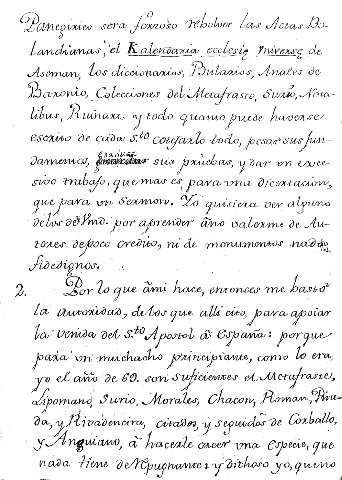 Panegirico sera forzoso rebolver las Actas Bo-
landianas, el Kalendaria ecclesię vniversę de
Aseman, los diccionarios, Bularios, Anales de
Baronio, Colecciones del Metafraste, Surio, Nata-
libus, Ruinart, y todo quanto puede haverse
escrito de cada sto cotejarlo todo, pesar sus fun-
damentos, graduar sus pruebas, y dar un exce-
sivo trabajo, que mas es para vna disertacion,
que para un Sermon. Yo quisiera ver alguno
de los de Vmd. por aprender âno valerme de Au-
tores de poco credito, ni de monumentos nada
fidedignos.
2. Por lo que âmi hace, entonces me bastó
la autoridad, de los que alli cito, para apoiar
la venida del Sto Apostol â España: porque
para un muchacho principiante, como lo era
yo el año de 69. son suficientes el Metafraste,
Lipomano, Surio, Morales, Chacon, Roman,
da, y Rivadeneira, citados, y seguidos de Corballo,
y Anguiano, â hacerle creer vna especie, que
nada tiene de repugnante: y dichoso yo, que no